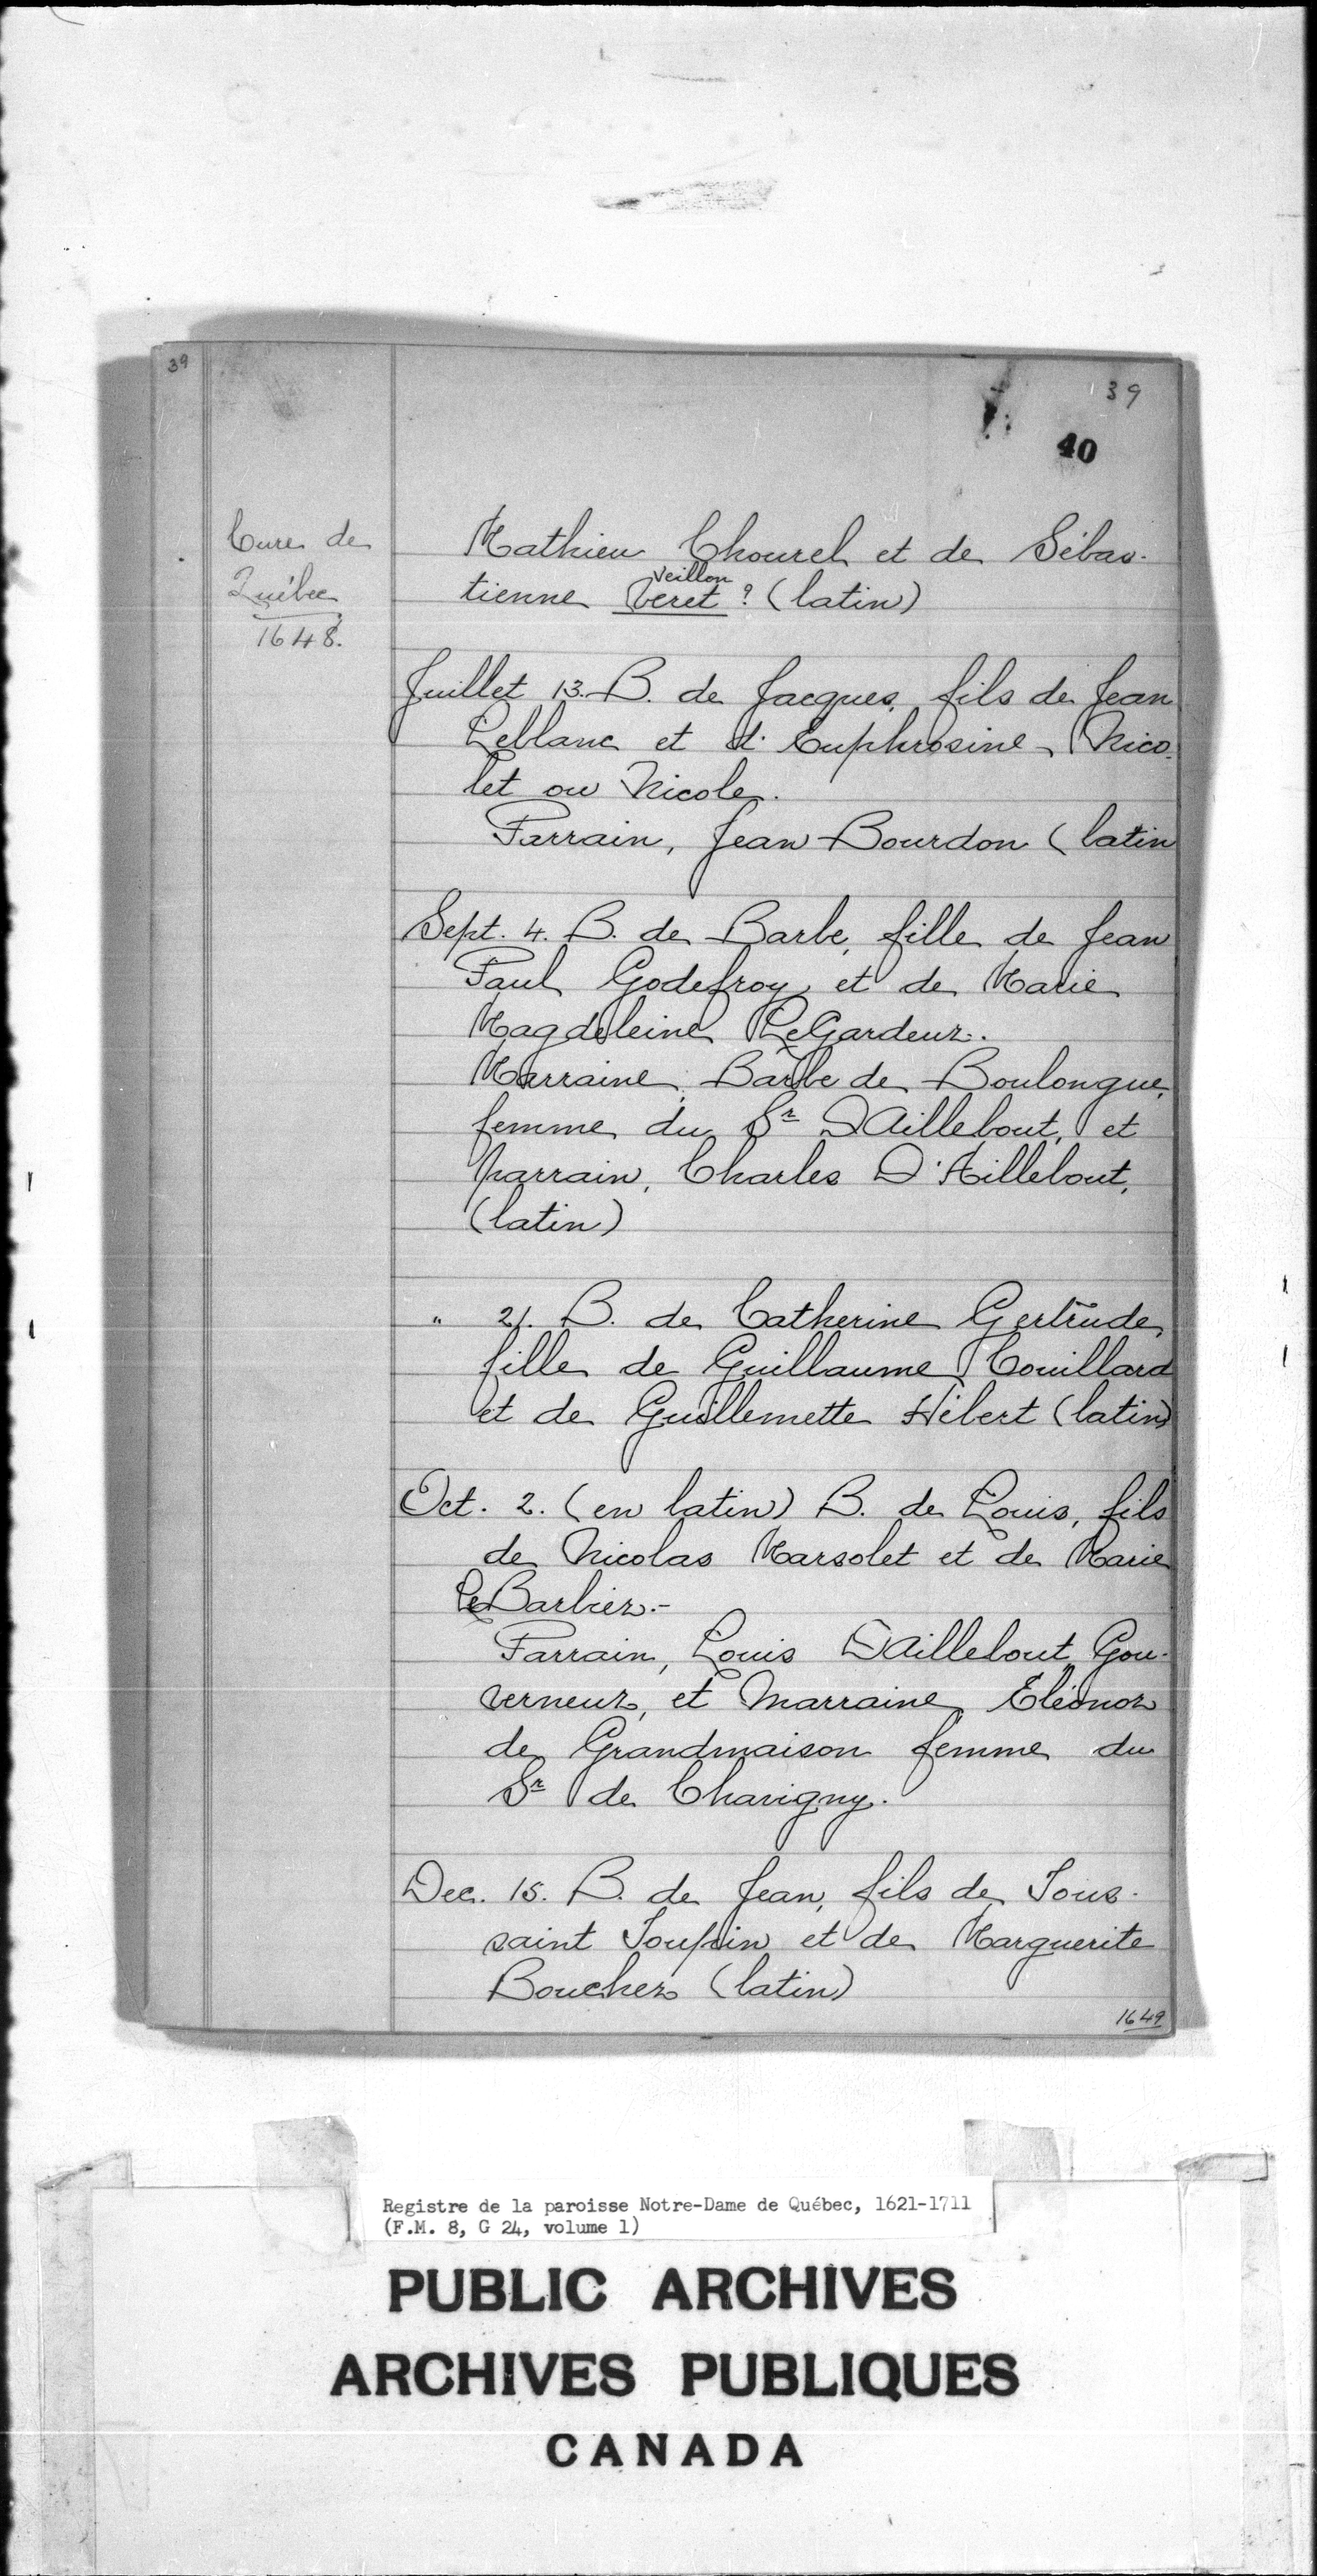 39
39
40
Cure de
Québec
1648.
Mathieu Chourel et de Sébas-
Veillon
tienne Veret ? (latin)
Juillet 13. B. de Jacques, fils de Jean
Leblanc et d'Euphrosine Nico-
let ou Nicole.
Parrain, Jean Bourdon (latin
Sept. 4. B. de Barbe, fille de Jean
Paul Godefroy et de Marie
Magdeleine LeGardeur.
Marraine, Barbe de Boulongue,
femme du Sr D'Aillebout, et
parrain, Charles D'Aillebout,
(latin)
" 21. B. de Catherine Gertrude,
fille de Guillaume Couillard
et de Guillemette Hébert (latin)
Oct. 2. (en latin) B. de Louis, fils
de Nicolas Marsolet et de Marie
Le Barbier.-
Parrain, Louis D'Aillebout, Gou-
verneur, et marraine, Eléonor
de Grandmaison femme du
Sr de Chavigny.
Dec. 15. B. de Jean, fils de Tous-
saint Toupin et de Marguerite
Boucher (latin)
1649
Registre de la paroisse Notre-Dame de Québec, 1621-1711
(F.M. 8, G 24, volume 1)
PUBLIC ARCHIVES
ARCHIVES PUBLIQUES
CANADA